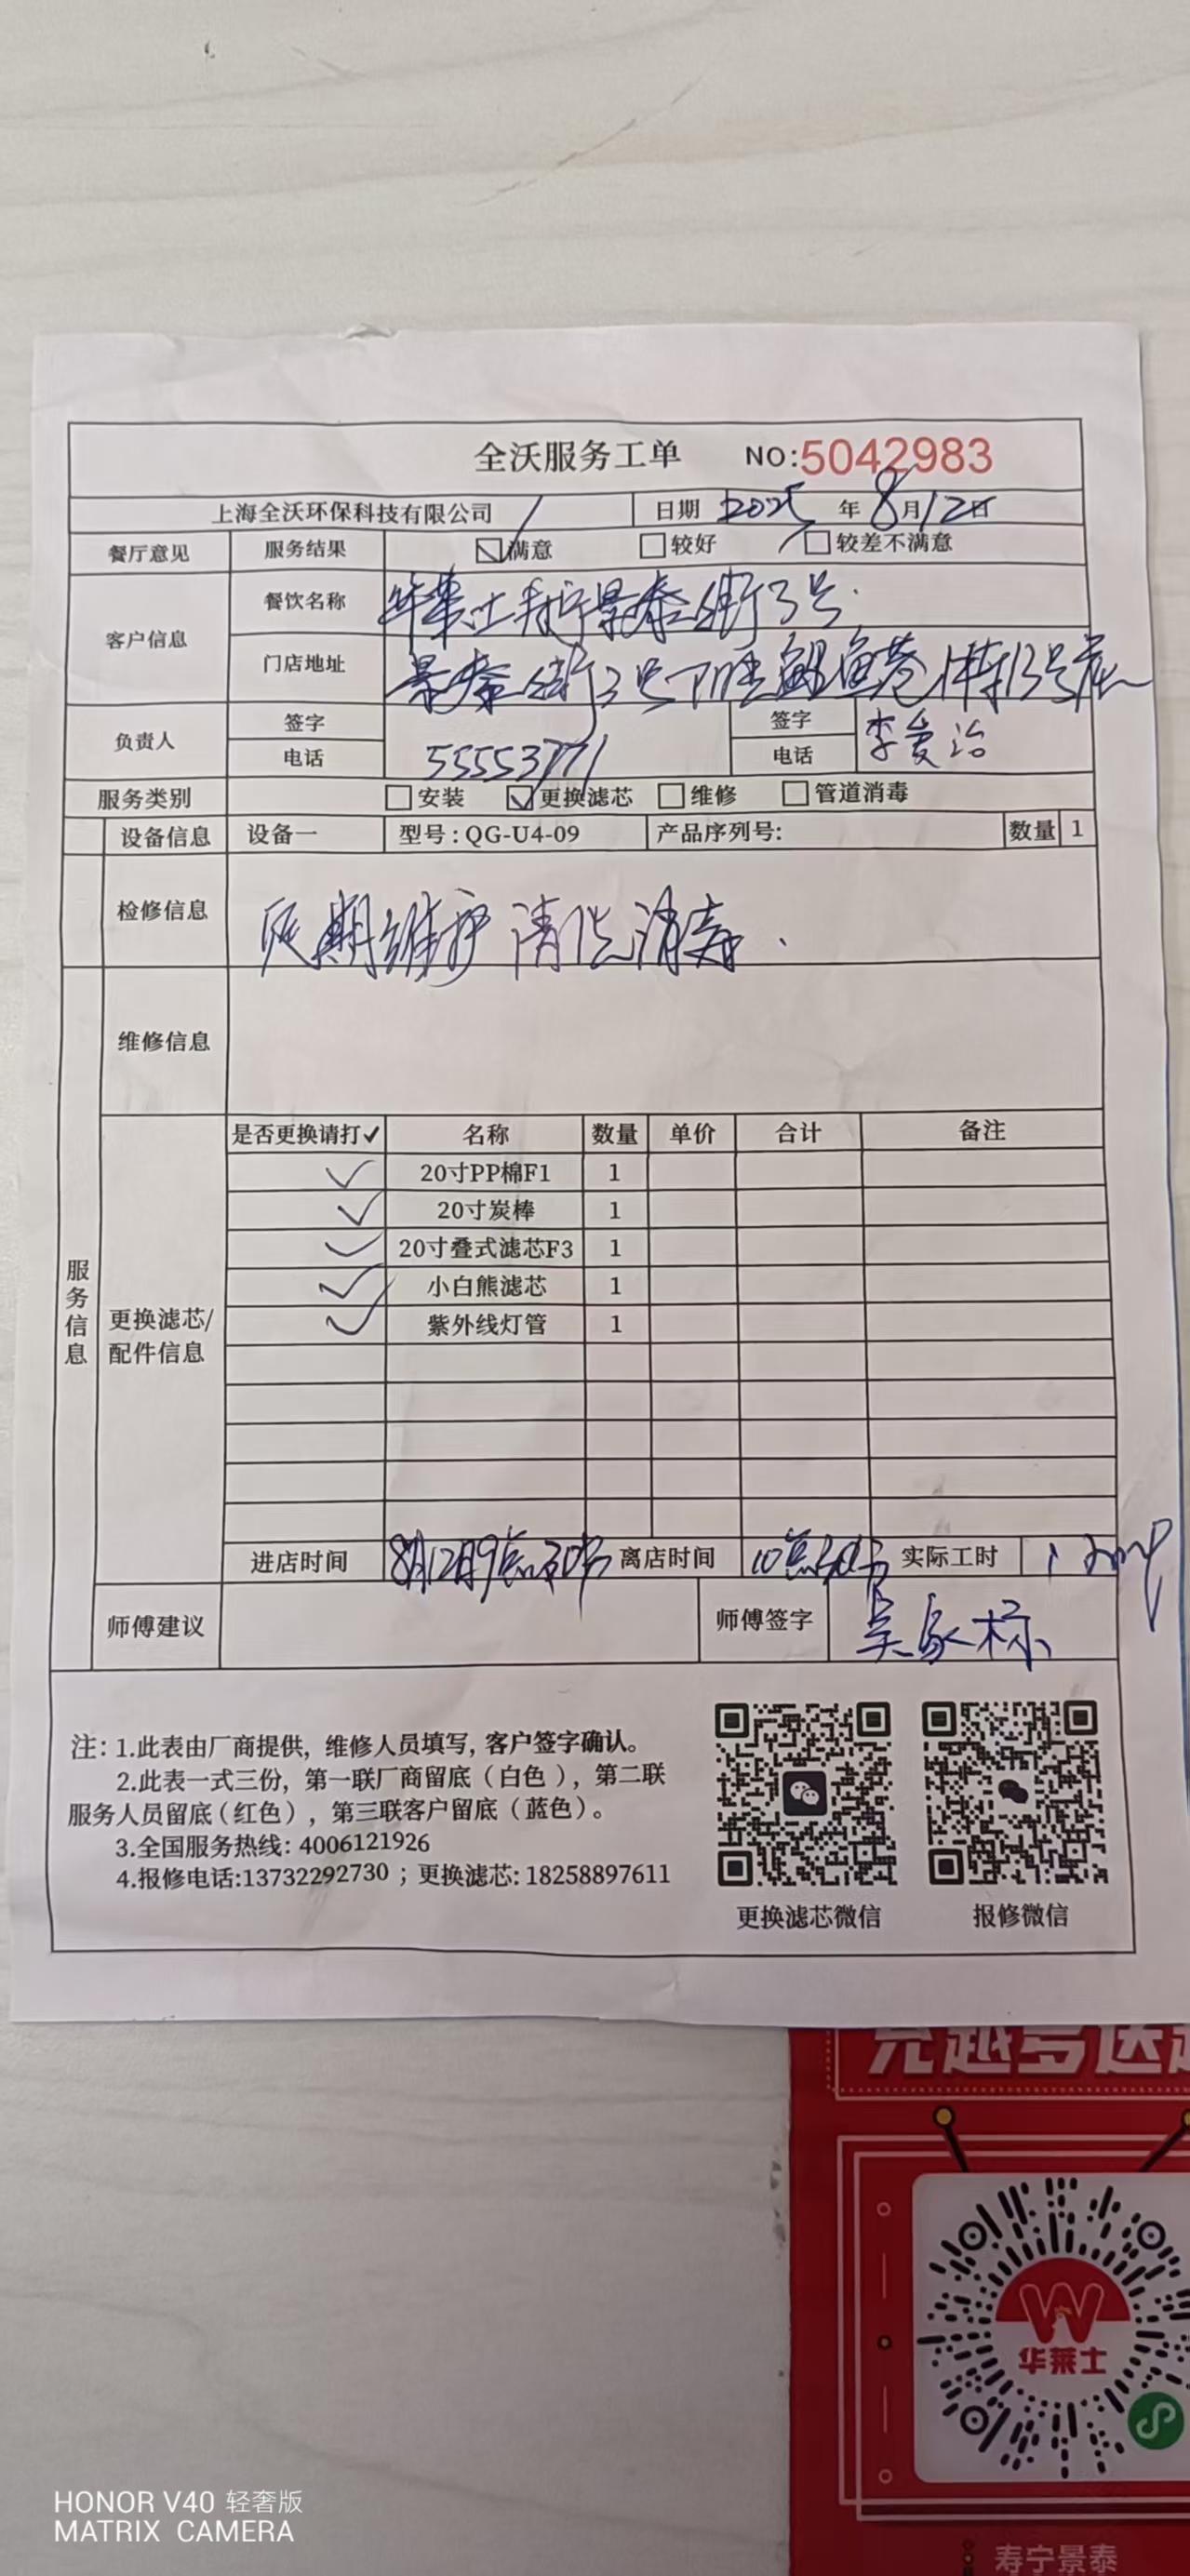 全沃服务工单 NO:5042983
上海全沃环保科技有限公司 日期 2025年8月12日
餐厅意见 服务结果 满意 较好 较差不满意
客户信息 餐饮名称 华莱士寿宁景泰街3号
门店地址 景泰街3号
负责人 签字 签字 李爱治
电话 55553771 电话
服务类别 安装 更换滤芯 维修 管道消毒
设备信息 设备一 型号:QG-U4-09 产品序列号: 数量 1
检修信息 期维护 清洗消毒.
维修信息
服务信息
更换滤芯/配件信息
是否更换请打✓ 名称 数量 单价 合计 备注
✓ 20寸PP棉F1 1
✓ 20寸炭棒 1
✓ 20寸叠式滤芯F3 1
✓ 小白熊滤芯 1
✓ 紫外线灯管 1
进店时间 8月12日9点30分 离店时间 10点30分 实际工时 1
师傅建议 师傅签字 吴家标
注: 1.此表由厂商提供, 维修人员填写, 客户签字确认。
2.此表一式三份, 第一联厂商留底(白色), 第二联
服务人员留底(红色), 第三联客户留底(蓝色)。
3.全国服务热线: 4006121926
4.报修电话:13732292730 ; 更换滤芯: 18258897611
更换滤芯微信 报修微信
充越多送
华莱士
寿宁景泰
HONOR V40 轻奢版
MATRIX CAMERA